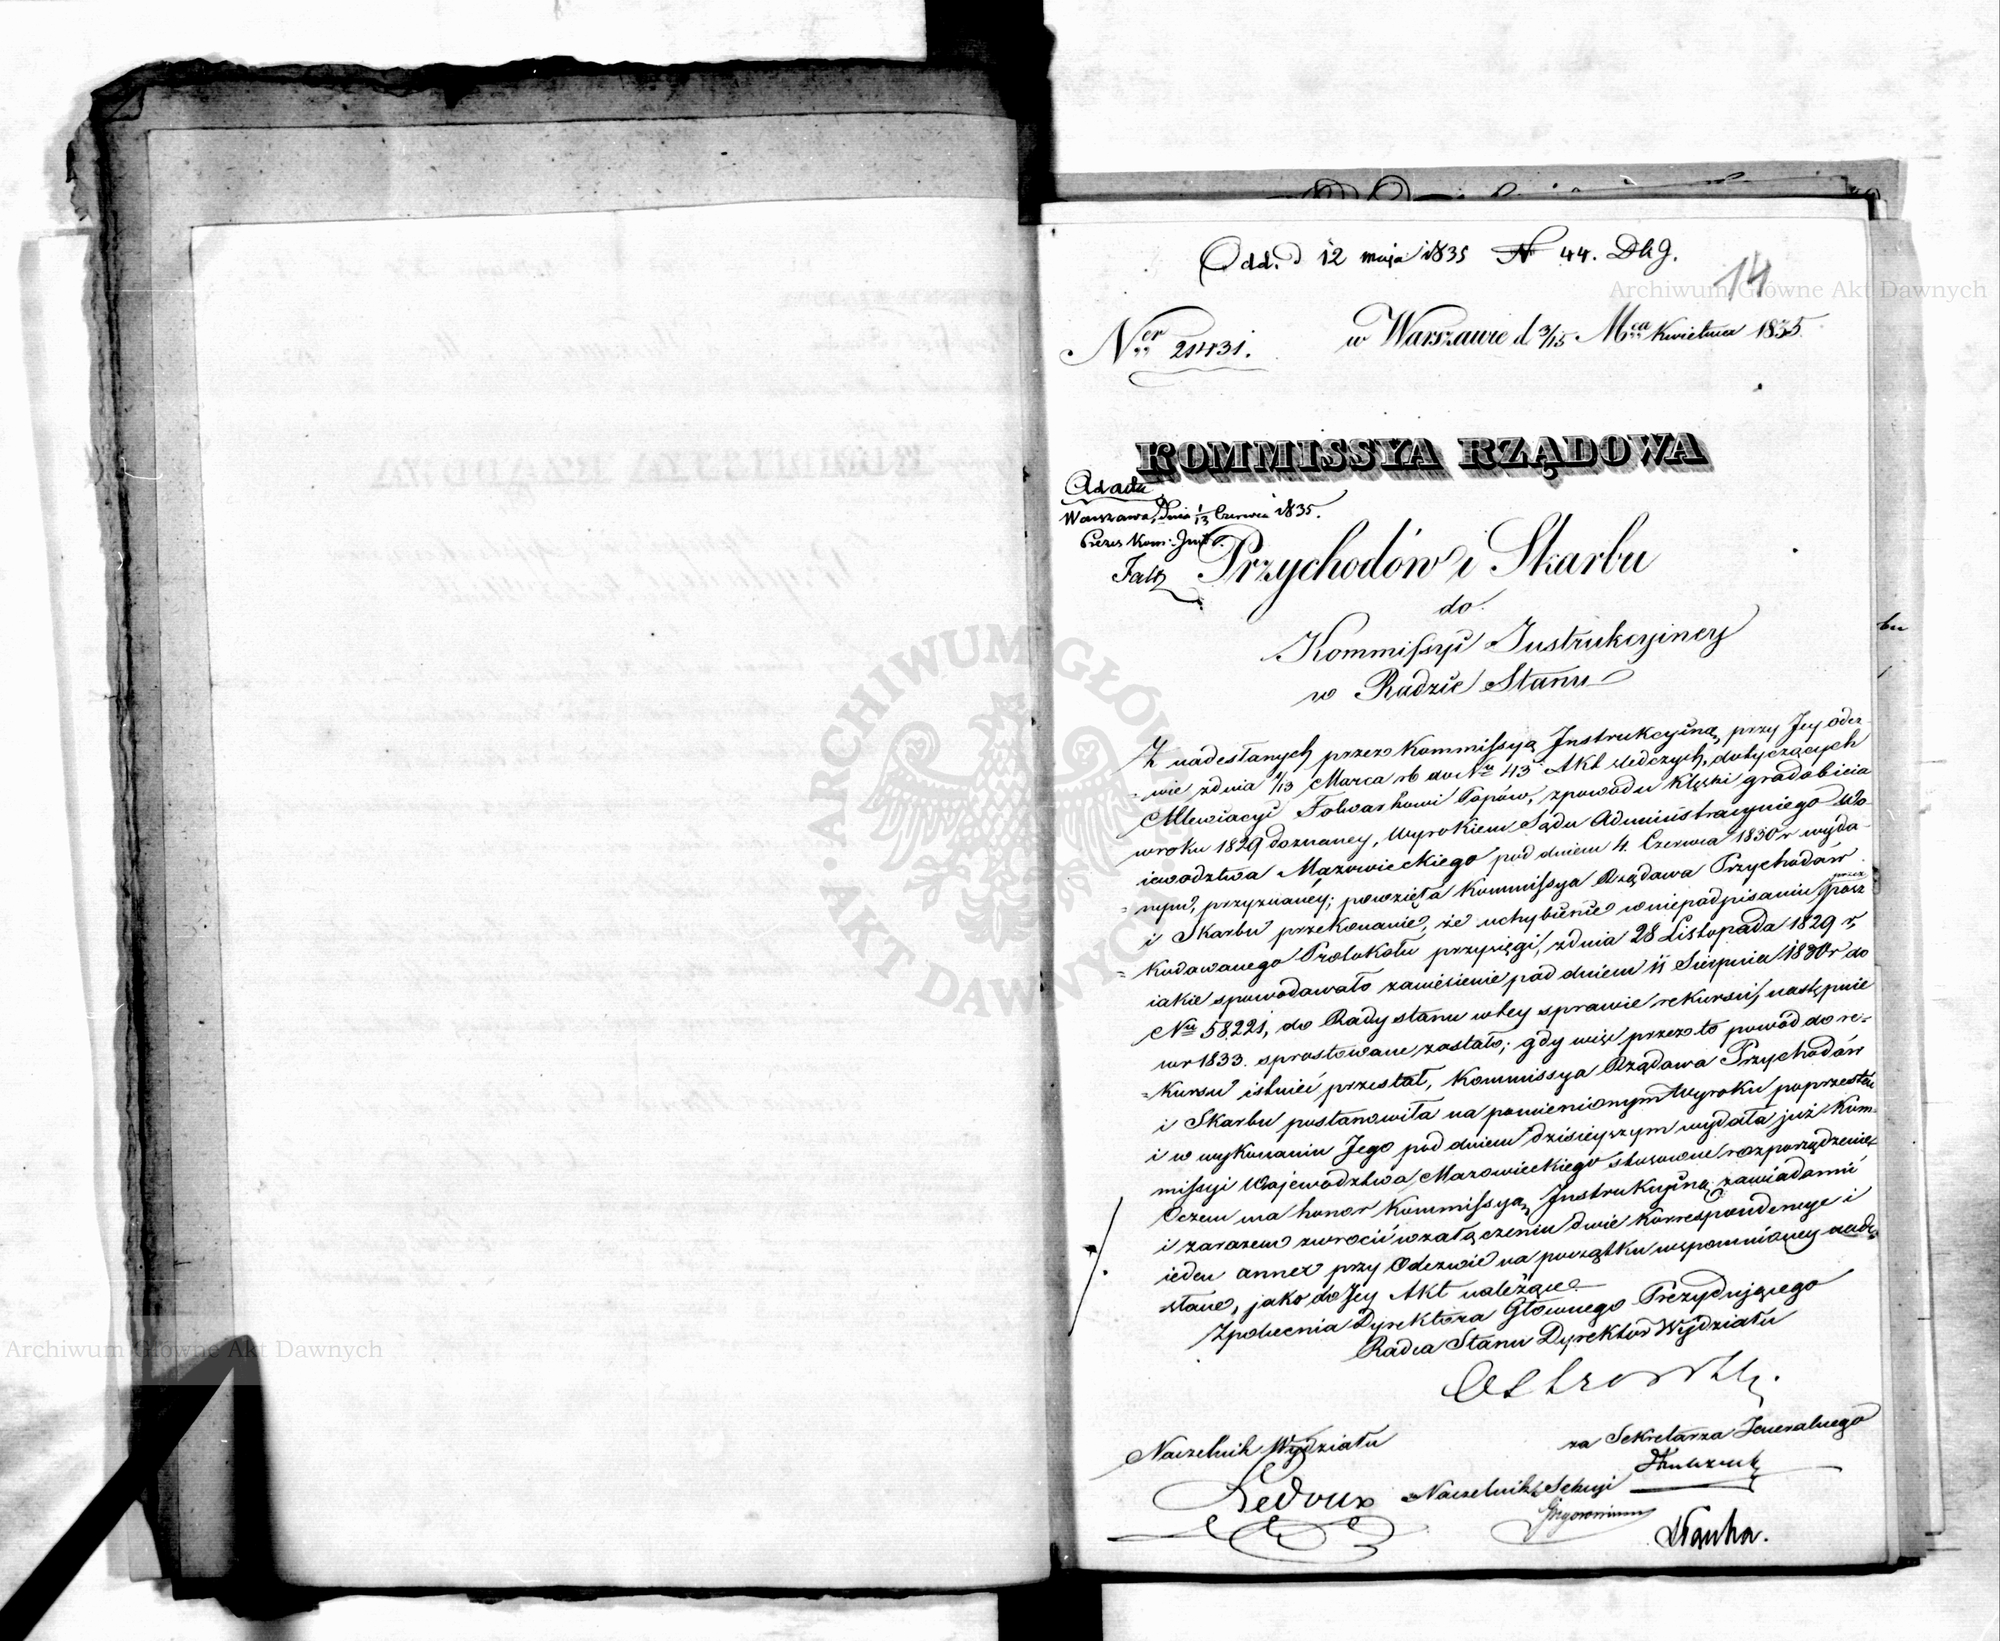 Odd. d 12 maja 1835 N 44. DkJ.
14
Archiwum Główne Akt Dawnych
Ner 21431.
w Warszawie d. 3/15 Mca Kwietnia 1835.
KOMMISSYA RZĄDOWA
Ad acta
Warszawa, dnia 1/13 Czerwca 1835.
Prezes Kom: Inst.
Faltz
Przychodów i Skarbu
do
Kommissyi Instrukcyiney
w Radzie Stanu
Z nadesłanych przez Kommissyą Instrukcyiną, przy Jey odez-
-wie z dnia 1/13 Marca rb do Nru 43 Akt śledczych, dotyczących
Allewiacyi Folwarkowi Popów, z powodu klęski gradobicia
w roku 1829 doznaney, wyrokiem Sądu Administracyinego Wo-
iewodztwa Mazowieckiego pod dniem 4. Czerwca 1830 r wyda-
-nym, przyznaney; powzięła Kommissya Rządowa Przychodów
i Skarbu przekonanie, że uchybienie w niepodpisaniu przez posz-
-kodowanego Protokołu przysięgi, z dnia 28 Listopada 1829 r,
iakie spowodowało zaniesienie pod dniem 11 Sierpnia 1830 r do
Nru 58221, do Rady stanu w tey sprawie rekursu, następnie
w r 1833. sprostowane zostało; gdy więc przez to powód do re-
-kursu istnieć przestał, Kommissya Rządowa Przychodów
i Skarbu postanowiła na pomienionym Wyroku poprzestać
i w wykonaniu Jego pod dniem dzisieyszym wydała już Kom-
missyi Województwa Mazowieckiego stosowne rozporządzenie,
Oczem ma honor Kommissyą Instrukcyiną zawiadomić
i zarazem zwrócić w załączeniu dwie korrespondencye i
ieden annex przy Odezwie na początku wspomnioney nade-
słane, jako do Jey Akt należące.
Z polecenia Dyrektora Głównego Prezydującego
Radca Stanu Dyrektor Wydziału
Naczelnik Wydziału
Ledoux
za Sekretarza Jeneralnego
Naczelnik Sekcyi
ARCHIWUM GŁÓWNE AKT DAWNYCH
Archiwum Główne Akt Dawnych